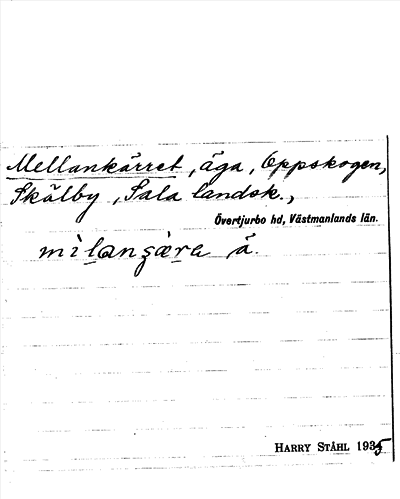 Mellankärret, äga, Oppskogen,
Skälby, Sala landsk.,
Övertjurbo hd, Västmanlands län.
ä.
HARRY STÅHL 1935